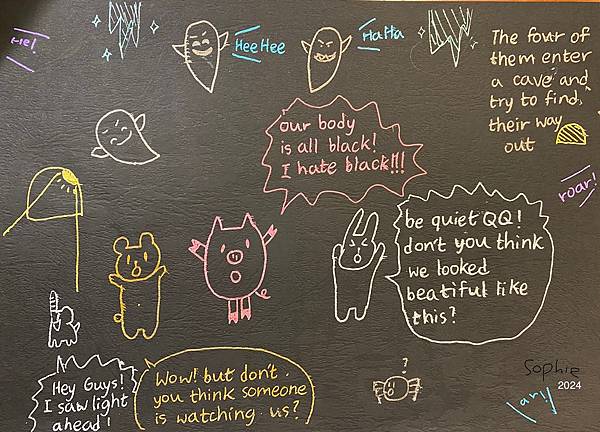 He!
HeeHee
HaHa
The four of
them enter
a cave and
try to find
their way
out
our body
is all black!
I hate black!!!
roar!
be quiet QQ!
don't you think
we looked
beatiful like
this?
Hey Guys!
I saw light
ahead!
Wow! but don't
you think someone
is watching us?
?
Sophie
2024